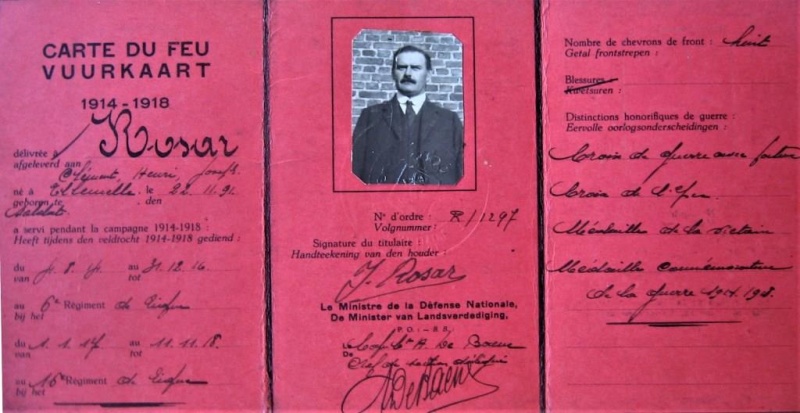 CARTE DU FEU
VUURKAART
1914-1918
Rosar
délivrée à
afgeleverd aan
Clément, Henri, Joseph
né à le 22.11.91.
geboren te den
Soldat
a servi pendant la campagne 1914-1918 :
Heeft tijdens den veldtrocht 1914-1918 gediend :
du au 31.12.16
van tot
au 6e Régiment de Ligne
bij het
du 1.1.17 au 11.11.18.
van tot
au 16e Régiment de Ligne
bij het
N° d'ordre : R/1297
Volgnummer :
Signature du titulaire :
Handteekening van den houder :
J. Rosar
Le Ministre de la Défense Nationale,
De Minister van Landsverdediging,
P.O. : - B.B.
Le A. De
De
Chef de section
Nombre de chevrons de front : huit
Getal frontstrepen :
Blessures
Kwetsuren :
Distinctions honorifiques de guerre :
Eervolle oorlogsonderscheidingen :
Croix de guerre avec palme
Croix de l'Yser
Médaille de la victoire
Médaille commémorative
de la guerre 1914.918.